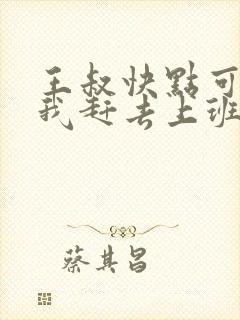 王叔快點可
我赶去上班
蔡其昌